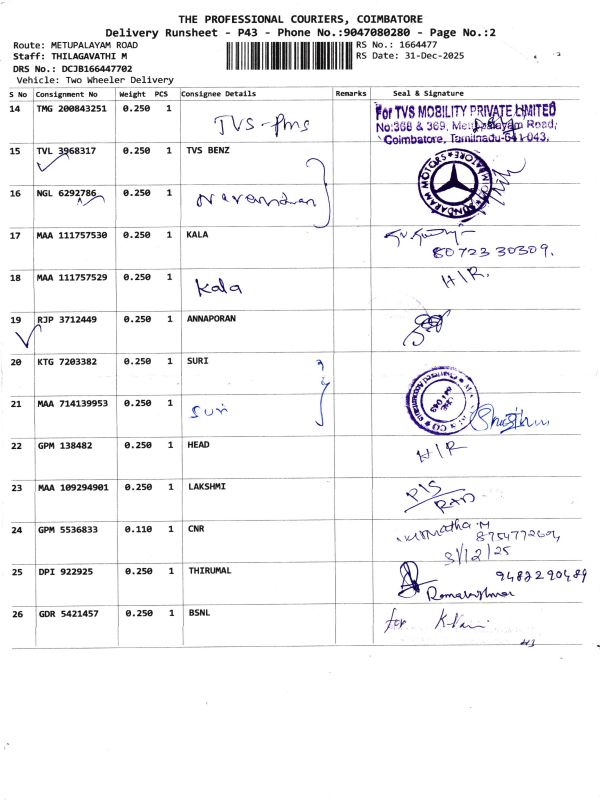 THE PROFESSIONAL COURIERS, COIMBATORE
Delivery Runsheet - P43 - Phone No.:9047080280 - Page No.:2
Route: METUPALAYAM ROAD RS No.: 1664477
Staff: THILAGAVATHI M RS Date: 31-Dec-2025
DRS No.: DCJB166447702
Vehicle: Two Wheeler Delivery
S No Consignment No Weight PCS Consignee Details Remarks Seal & Signature
14 TMG 200843251 0.250 1 TVS-Pms For TVS MOBILITY PRIVATE LIMITED
No:368 & 369, Mettupalayam Road,
Coimbatore, Tamilnadu-641 043.
15 TVL 3968317 0.250 1 TVS BENZ
SUNDARAM MOTORS
16 NGL 6292786 0.250 1
17 MAA 111757530 0.250 1 KALA
80723 30309.
18 MAA 111757529 0.250 1 Kala H/R.
19 RJP 3712449 0.250 1 ANNAPORAN
20 KTG 7203382 0.250 1 SURI
21 MAA 714139953 0.250 1 Suri
22 GPM 138482 0.250 1 HEAD H/R
23 MAA 109294901 0.250 1 LAKSHMI P/S
24 GPM 5536833 0.110 1 CNR
31/12/25
25 DPI 922925 0.250 1 THIRUMAL 9482290489
26 GDR 5421457 0.250 1 BSNL for